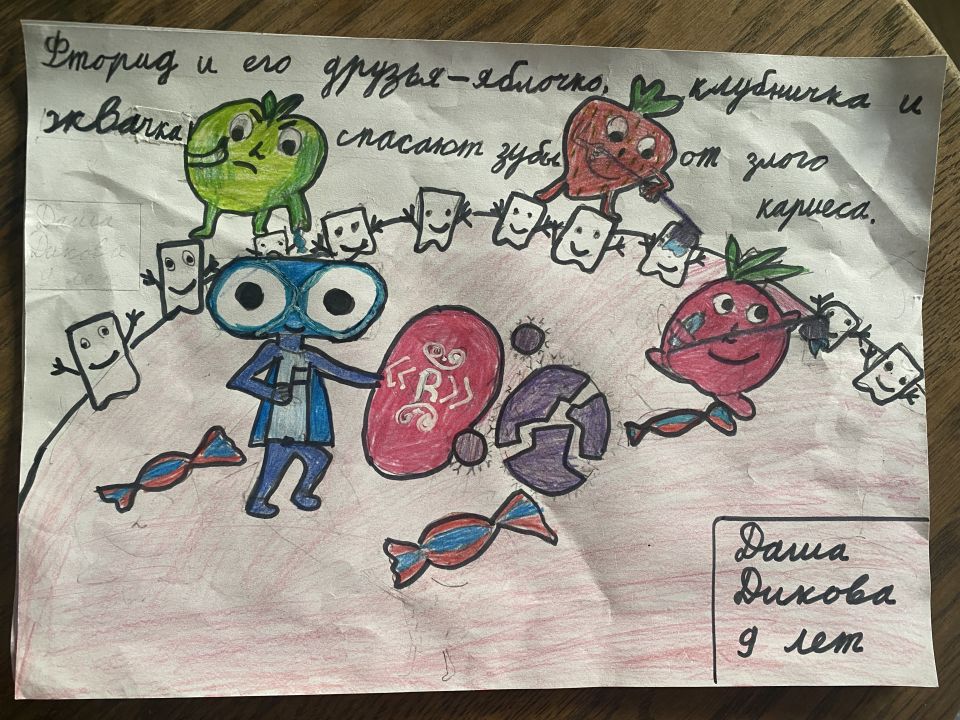 Фторид и его друзья-яблочко, клубничка и
жвачка спасают зубы от злого
кариеса.
Даша
Дикова
9 лет
<<R>>
Даша
Дикова
9 лет